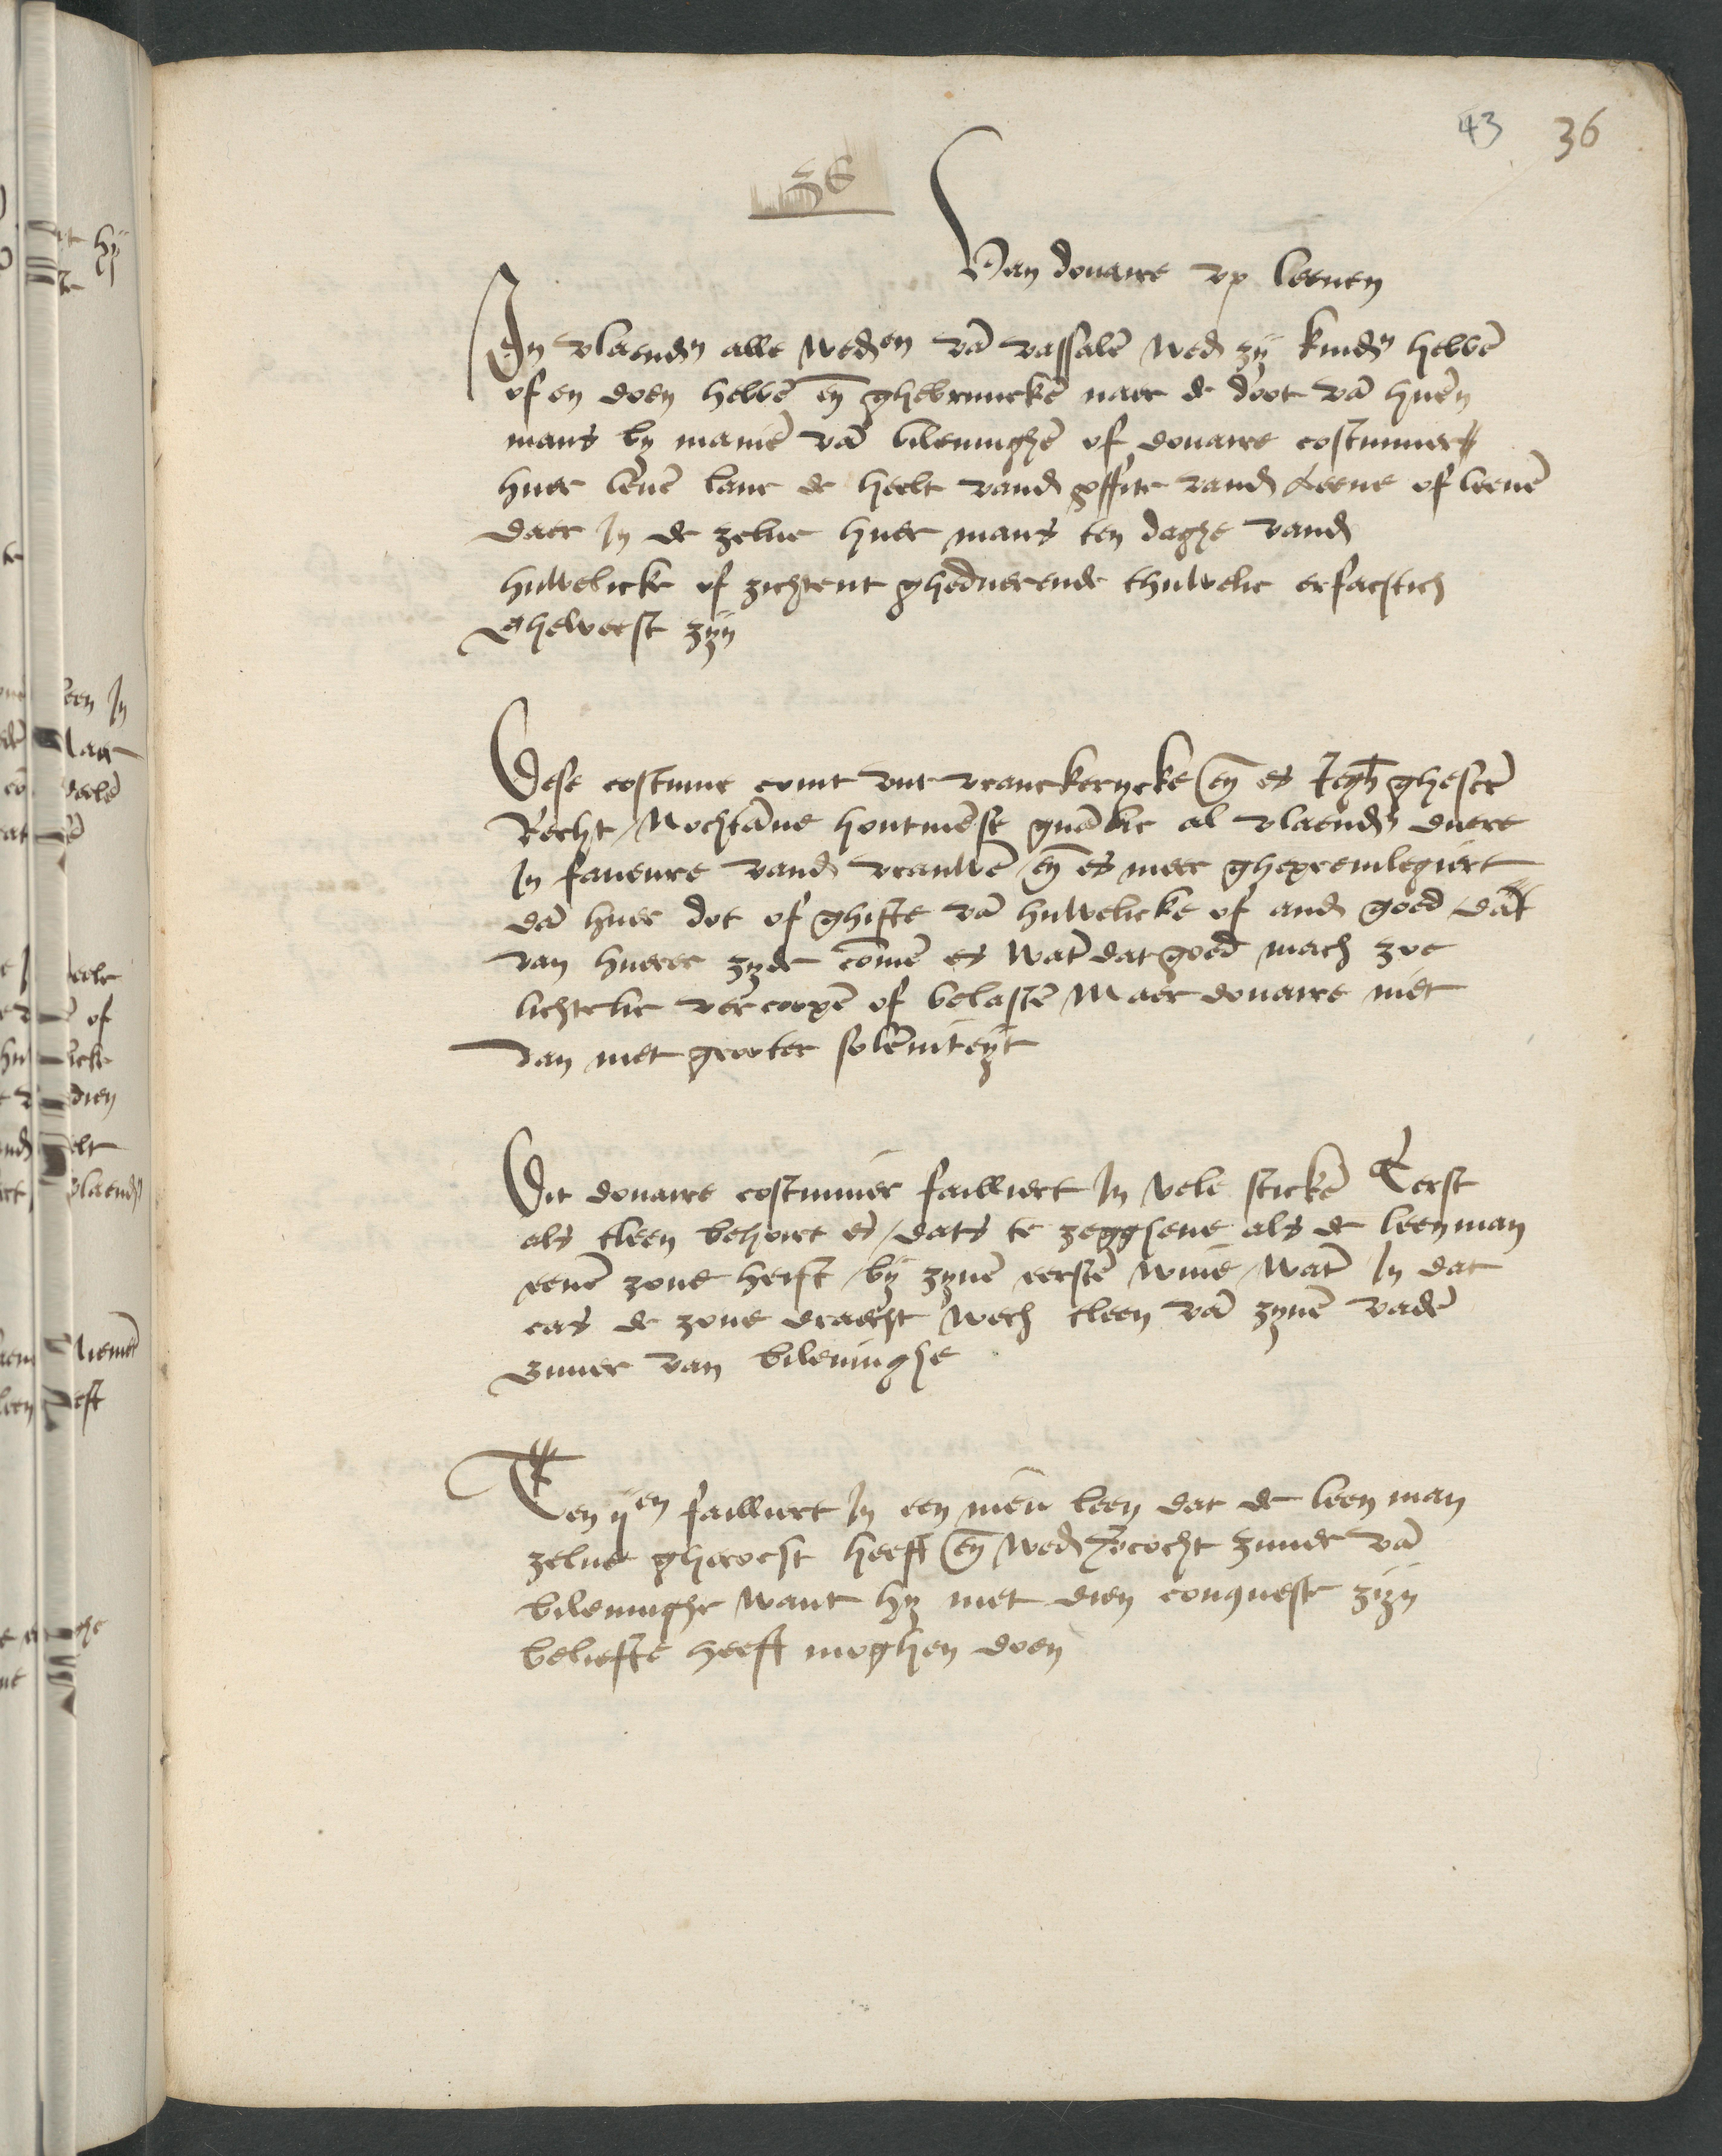 43 36
36
Van douaire vp leenen
In vlaendn alle weden vā vassalē wed zy kindn hebbē
of en doen hebbē en̄ ghebruuckē naer de doot vā huēn
mans by maniē vā bileuinghē of douaire costumier
huer leuē lanc de heelt vand pffite vand Leene of leenē
daer In de zelue huer mans ten daghe vand
huwelicke of zichtent gheduerende thuwelic erfachtich
Gheweest zyn
Dese costume comt vut vranckerycke en̄ es Jegh ghescrē
Recht / Nochtāne hontmēse gnālic al vlaendn duere
In faueure vand vrauwē en̄ es meer ghepreuilegiert
dā huer dot of ghifte vā huwelicke of and goed dāt
van huerer zyde comē es wāt dat goed mach zoe
lichtelic vercoopē of belastē Maer douaire niet
dan met grooter solēniteyt
Dit douaire costumier failliert In vele stickē Eerst
als tleen behoirt es / dats te zegghene als de leenman
eenē zone heift by zynē eerstē wiue / wāt In dat
cas de zone draecht wech tleen vā zynē vadē
zuuer van bileuinghe
Ten ijen failliert In een nieu leen dat de leen man
zelue ghecocht heeft en̄ wed vcocht zuuer vā
bileuinghe want hy met dien conqueste zyn
beliefte heeft moghen doen